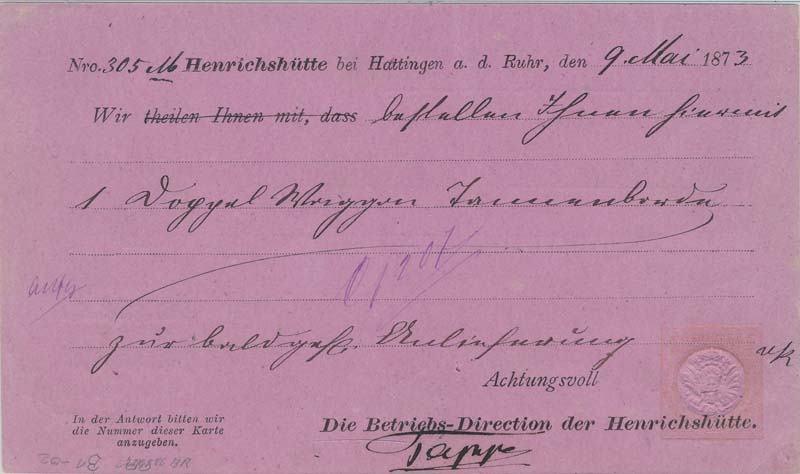 Nro. 305 M Henrichshütte bei Hattingen a. d. Ruhr, den 9. Mai 1873
Wir theilen Ihnen mit, dass bestellen Ihnen hiermit
1 Doppel Waggon Tannenborde
zur baldgefl. Anlieferung
Achtungsvoll
In der Antwort bitten wir
die Nummer dieser Karte
anzugeben.
Die Betriebs-Direction der Henrichshütte.